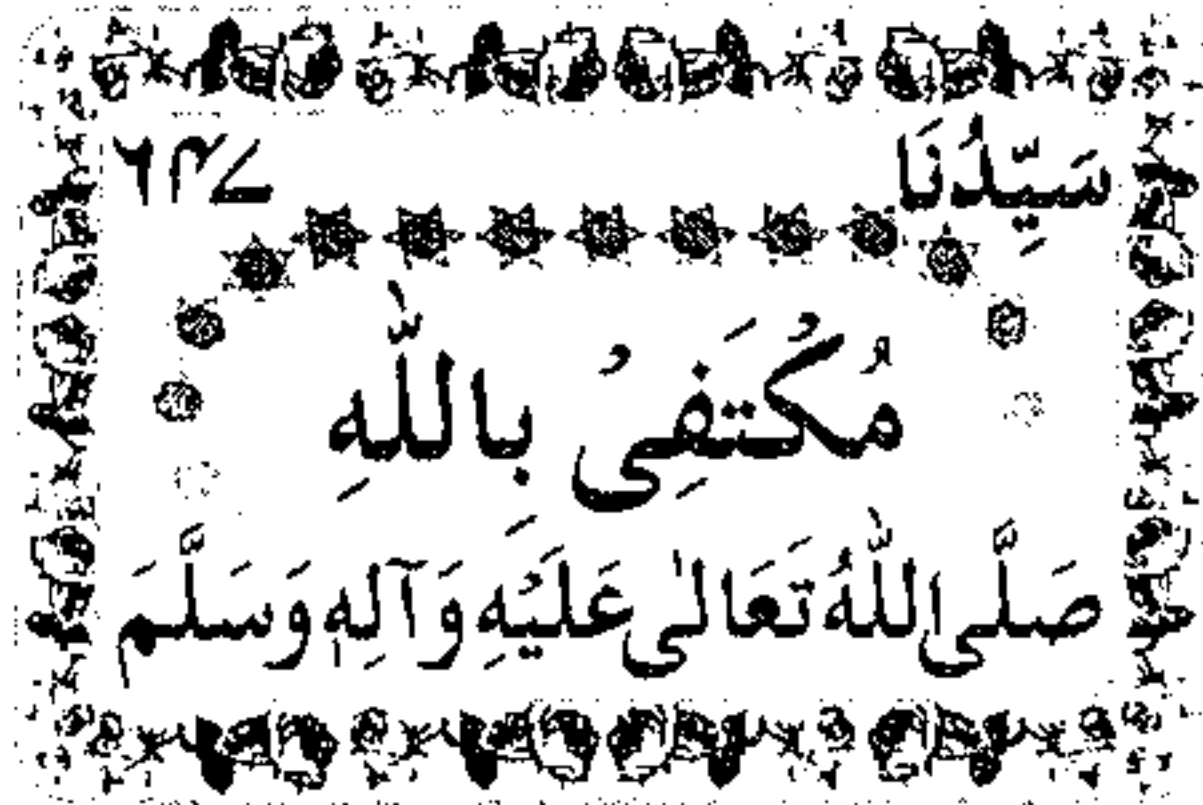 سَيِّدُنَا ۶۴۷
مُكْتَفِىْ بِاللّٰهِ
صَلَّى اللّٰهُ تَعَالٰى عَلَيْهِ وَآلِهٖ وَسَلَّمَ